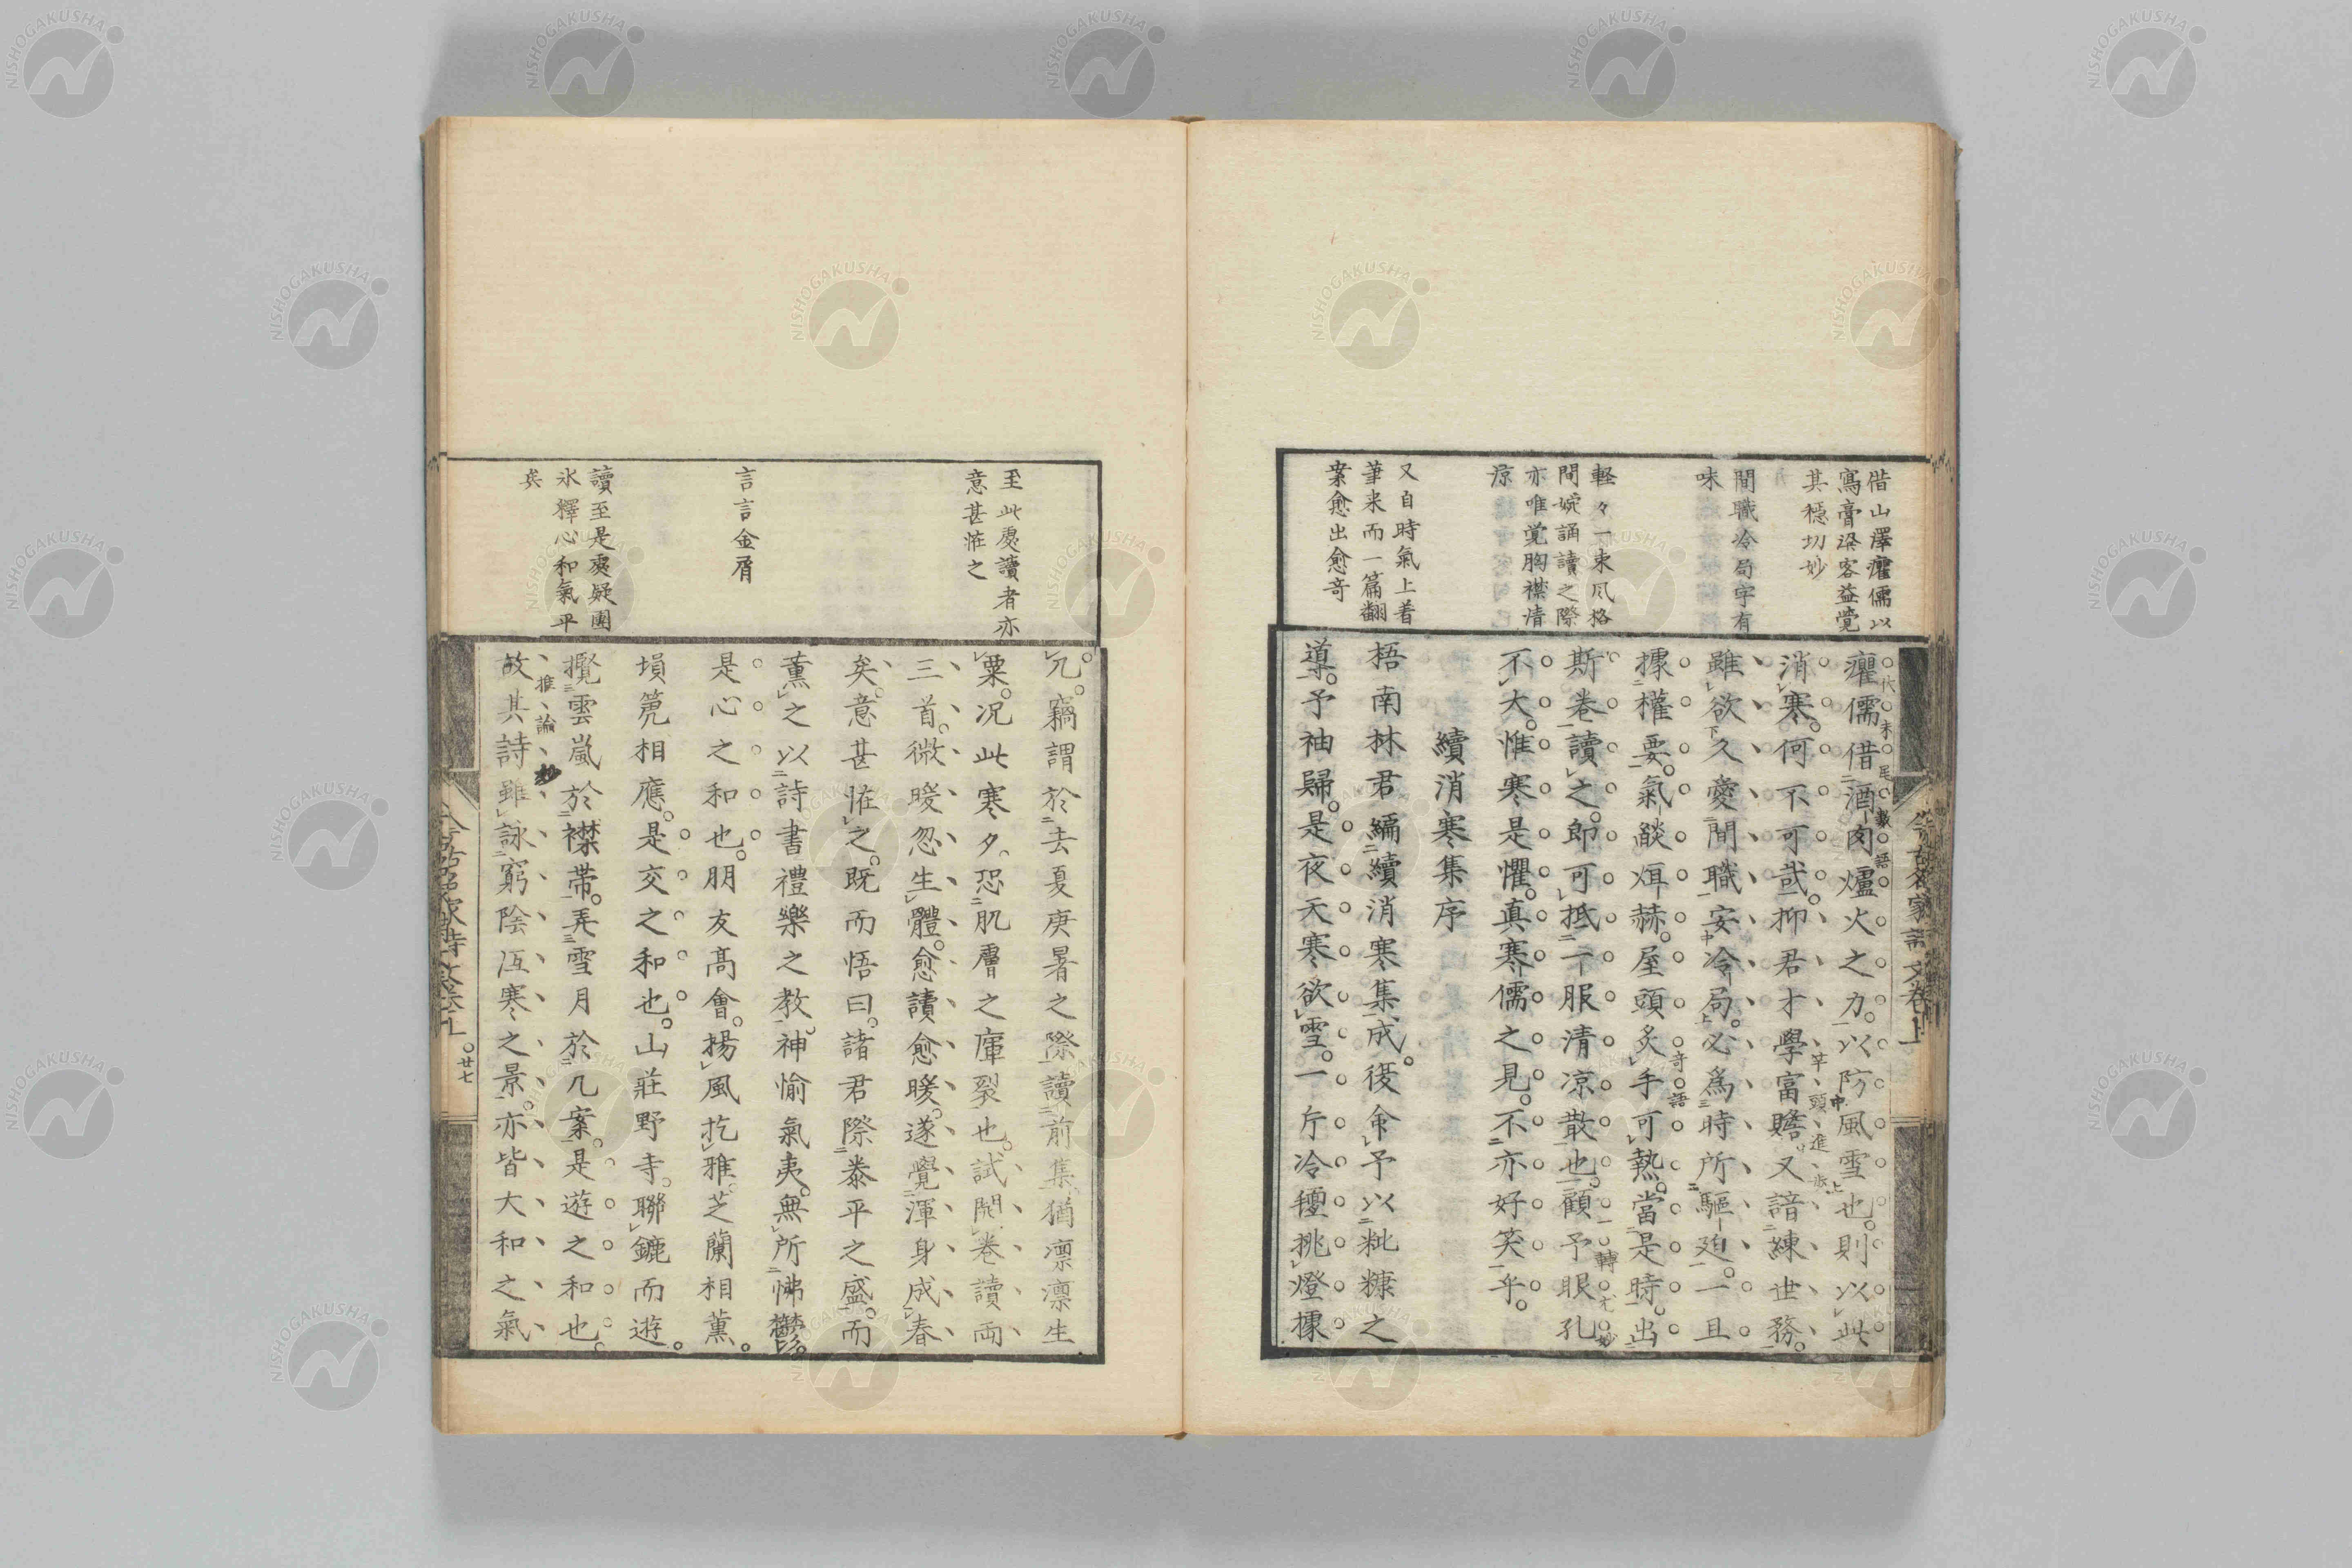 借山澤癯儒以
寫膏粱客益覺
其穩切妙
間職冷局字有
味
軽々一束風格
間婉誦讀之際
亦唯覚胸襟情
涼
又自時氣上着
筆来而一篇翻
案愈出愈奇
癯儒借酒肉爐火之力以防風雪也則以此
伏末尾數語
消寒何不可哉抑君才學富贍又諳練世務
竿頭進歩
雖欲久愛間職安冷局必爲時所驅廹一旦
據權要氣燄烜赫屋頭炙手可熱當是時出
奇語
斯卷讀之即可抵一服清凉散也顧予眼孔
一轉尤妙
不大惟寒是懼真寒儒之見不亦好笑乎
續消寒集序
梧南林君編續消寒集成役命予以粃糠之
導予袖歸是夜天寒欲雪一斤冷氈挑燈據
今古名家詩文卷上
至此處讀者亦
意甚恠之
言言金屑
讀至是處疑團
氷釋心和氣平
矣
几竊謂於去夏庚暑之際讀前集猶凛凛生
粟况此寒夕恐肌膚之庫裂也試開卷讀兩
三首微暖忽生體愈讀愈暖遂覺渾身成春
矣意甚恠之既而悟曰諸君際泰平之盛而
薫之以詩書禮樂之教神愉氣夷無所怫鬱
是心之和也朋友髙會揚風扢雅芝蘭相薫
塤箎相應是交之和也山莊野寺聯鑣而遊
攬雲嵐於襟帯弄雪月於几案是遊之和也
推論妙
故其詩雖詠窮陰沍寒之景亦皆大和之氣
廿七
NISHOGAKUSHA